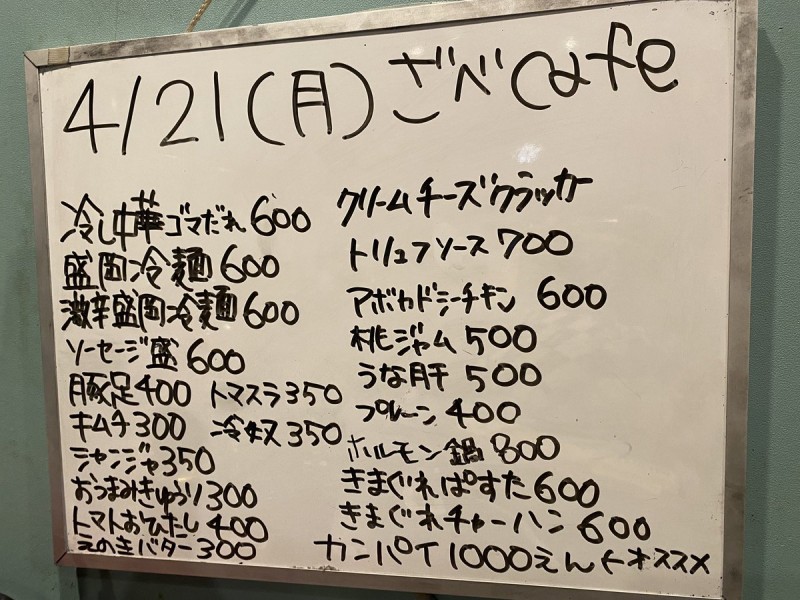 4/21(月)ごべCafe
冷し中華ゴマだれ 600
盛岡冷麺 600
激辛盛岡冷麺 600
ソーセージ盛 600
豚足 400 トマスラ 350
キムチ 300 冷奴 350
ジャンジャ 350
おつまみきゅうり 300
トマトおひたし 400
えのきバター 300
クリームチーズクラッカー
トリュフソース 700
アボカドシーチキン 600
桃ジャム 500
うな肝 500
プルーン 400
ホルモン鍋 800
きまぐれぱすた 600
きまぐれチャーハン 600
カンパイ 1000えん←オススメ